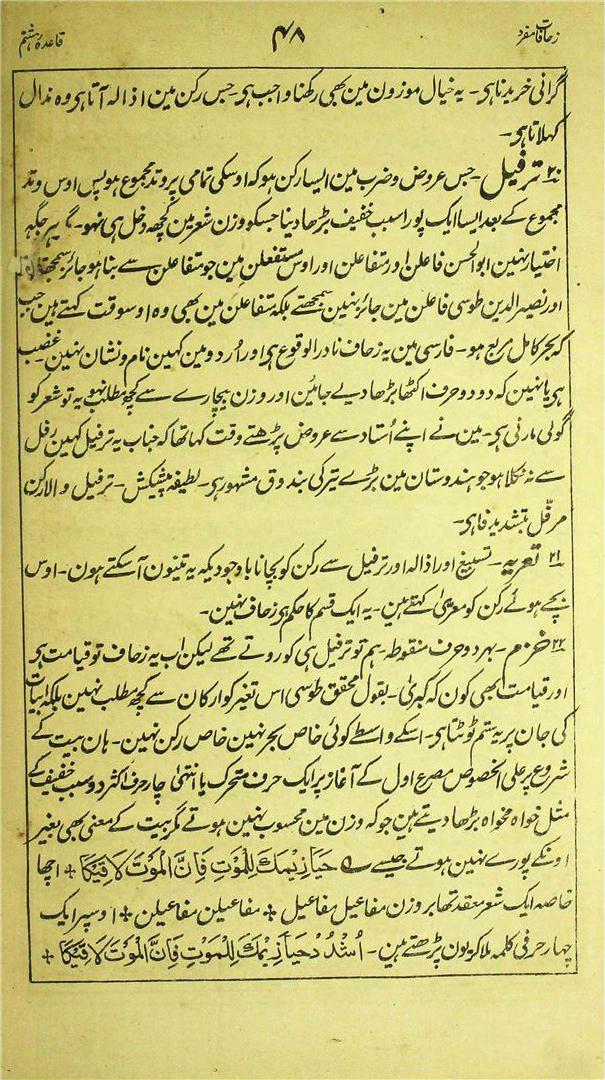 زحافات مفرد
۴۸
قاعدۂ ہشتم
گرانی خریدنا ہی۔ یہ خیال موزون مین بھی رکھنا واجب ہی۔ جس رکن مین اذالہ آتا ہی وہ مذال
کہلاتا ہی۔
۲۰ ترفیل۔ جس عروض و ضرب مین ایسا رکن ہو کہ اوسکی تمامی پر وتد مجموع ہو پس اوس وتد
مجموع کے بعد ایسا ایک پورا سبب خفیف بڑھا دینا جسکو وزن شعر مین کچھہ دخل ہی نہو۔ ہر جگہہ
اختیار نہین ابو الحسن فاعلن اور متفاعلن اور اوس مستفعلن مین جو متفاعلن سے بنا ہو جائز سمجھتا
اور نصیر الدین طوسی فاعلن مین جائز نہین سمجھتے بلکہ متفاعلن مین بھی وہ اوسوقت کہتے ہین جب
کہ بحر کامل مربع ہو۔ فارسی مین یہ زحاف نادر الوقوع ہی اور اُردو مین کہین نام و نشان نہین۔ غضب
ہی یا نہین کہ دو دو حرف اکٹھا بڑھا دیے جائین اور وزن بیچارے سے کچھ مطلب نہو یہ تو شعر کو
گولی مارنی ہی۔ مین نے اپنے اُستاد سے عروض پڑھتے وقت کہا تھا کہ جناب یہ ترفیل کہین رفل
سے نہ نکلا ہو جو ہندوستان مین بڑے تیر کی بندوق مشہور ہی۔ لطیفہ پیشکش۔ ترفیل والا رکن
مرفّل بتشدید فا ہی۔
۲۱ تعریہ۔ تسبیغ اور اذالہ اور ترفیل سے رکن کو بچانا باوجودیکہ یہ تینون آ سکتے ہون۔ اوس
بچے ہوئے رکن کو معریٰ کہتے ہین۔ یہ ایک قسم کا حکم ہی زحاف نہین۔
۲۲ خزم۔ بہر دو حرف منقوطہ۔ ہم تو ترفیل ہی کو روتے تھے لیکن اب یہ زحاف تو قیامت ہی
اور قیامت بھی کون کہ کبریٰ۔ بقول محقق طوسی اس تغیر کو ارکان سے کچھ مطلب نہین بلکہ ابیات
کی جان پر یہ ستم ٹوٹتا ہی۔ اسکے واسطے کوئی خاص بحر نہین خاص رکن نہین۔ ہان بیت کے
شروع پر علی الخصوص مصرع اول کے آغاز پر ایک حرف متحرک یا انتہیٰ چار حرف اکثر دو سبب خفیف کے
مثل خواہ مخواہ بڑھا دیتے ہین جو کہ وزن مین محسوب نہین ہوتے مگر بیت کے معنی بھی بغیر
اونکے پورے نہین ہوتے جیسے ؎ حَیَازِیْمَكَ لِلْمَوْتِ فَاِنَّ الْمَوْتَ لَاقِیْكَا ٭ اچھا
خاصہ ایک شعر معقد تھا بر وزن مفاعیل مفاعیل ٭ مفاعیلن مفاعیلن ٭ اوسپر ایک
چہار حرفی کلمہ ملا کر یون پڑھتے ہین۔ اُشْدُدْ حَیَازِیْمَكَ لِلْمَوْتِ فَاِنَّ الْمَوْتَ لَاقِیْكَا ٭